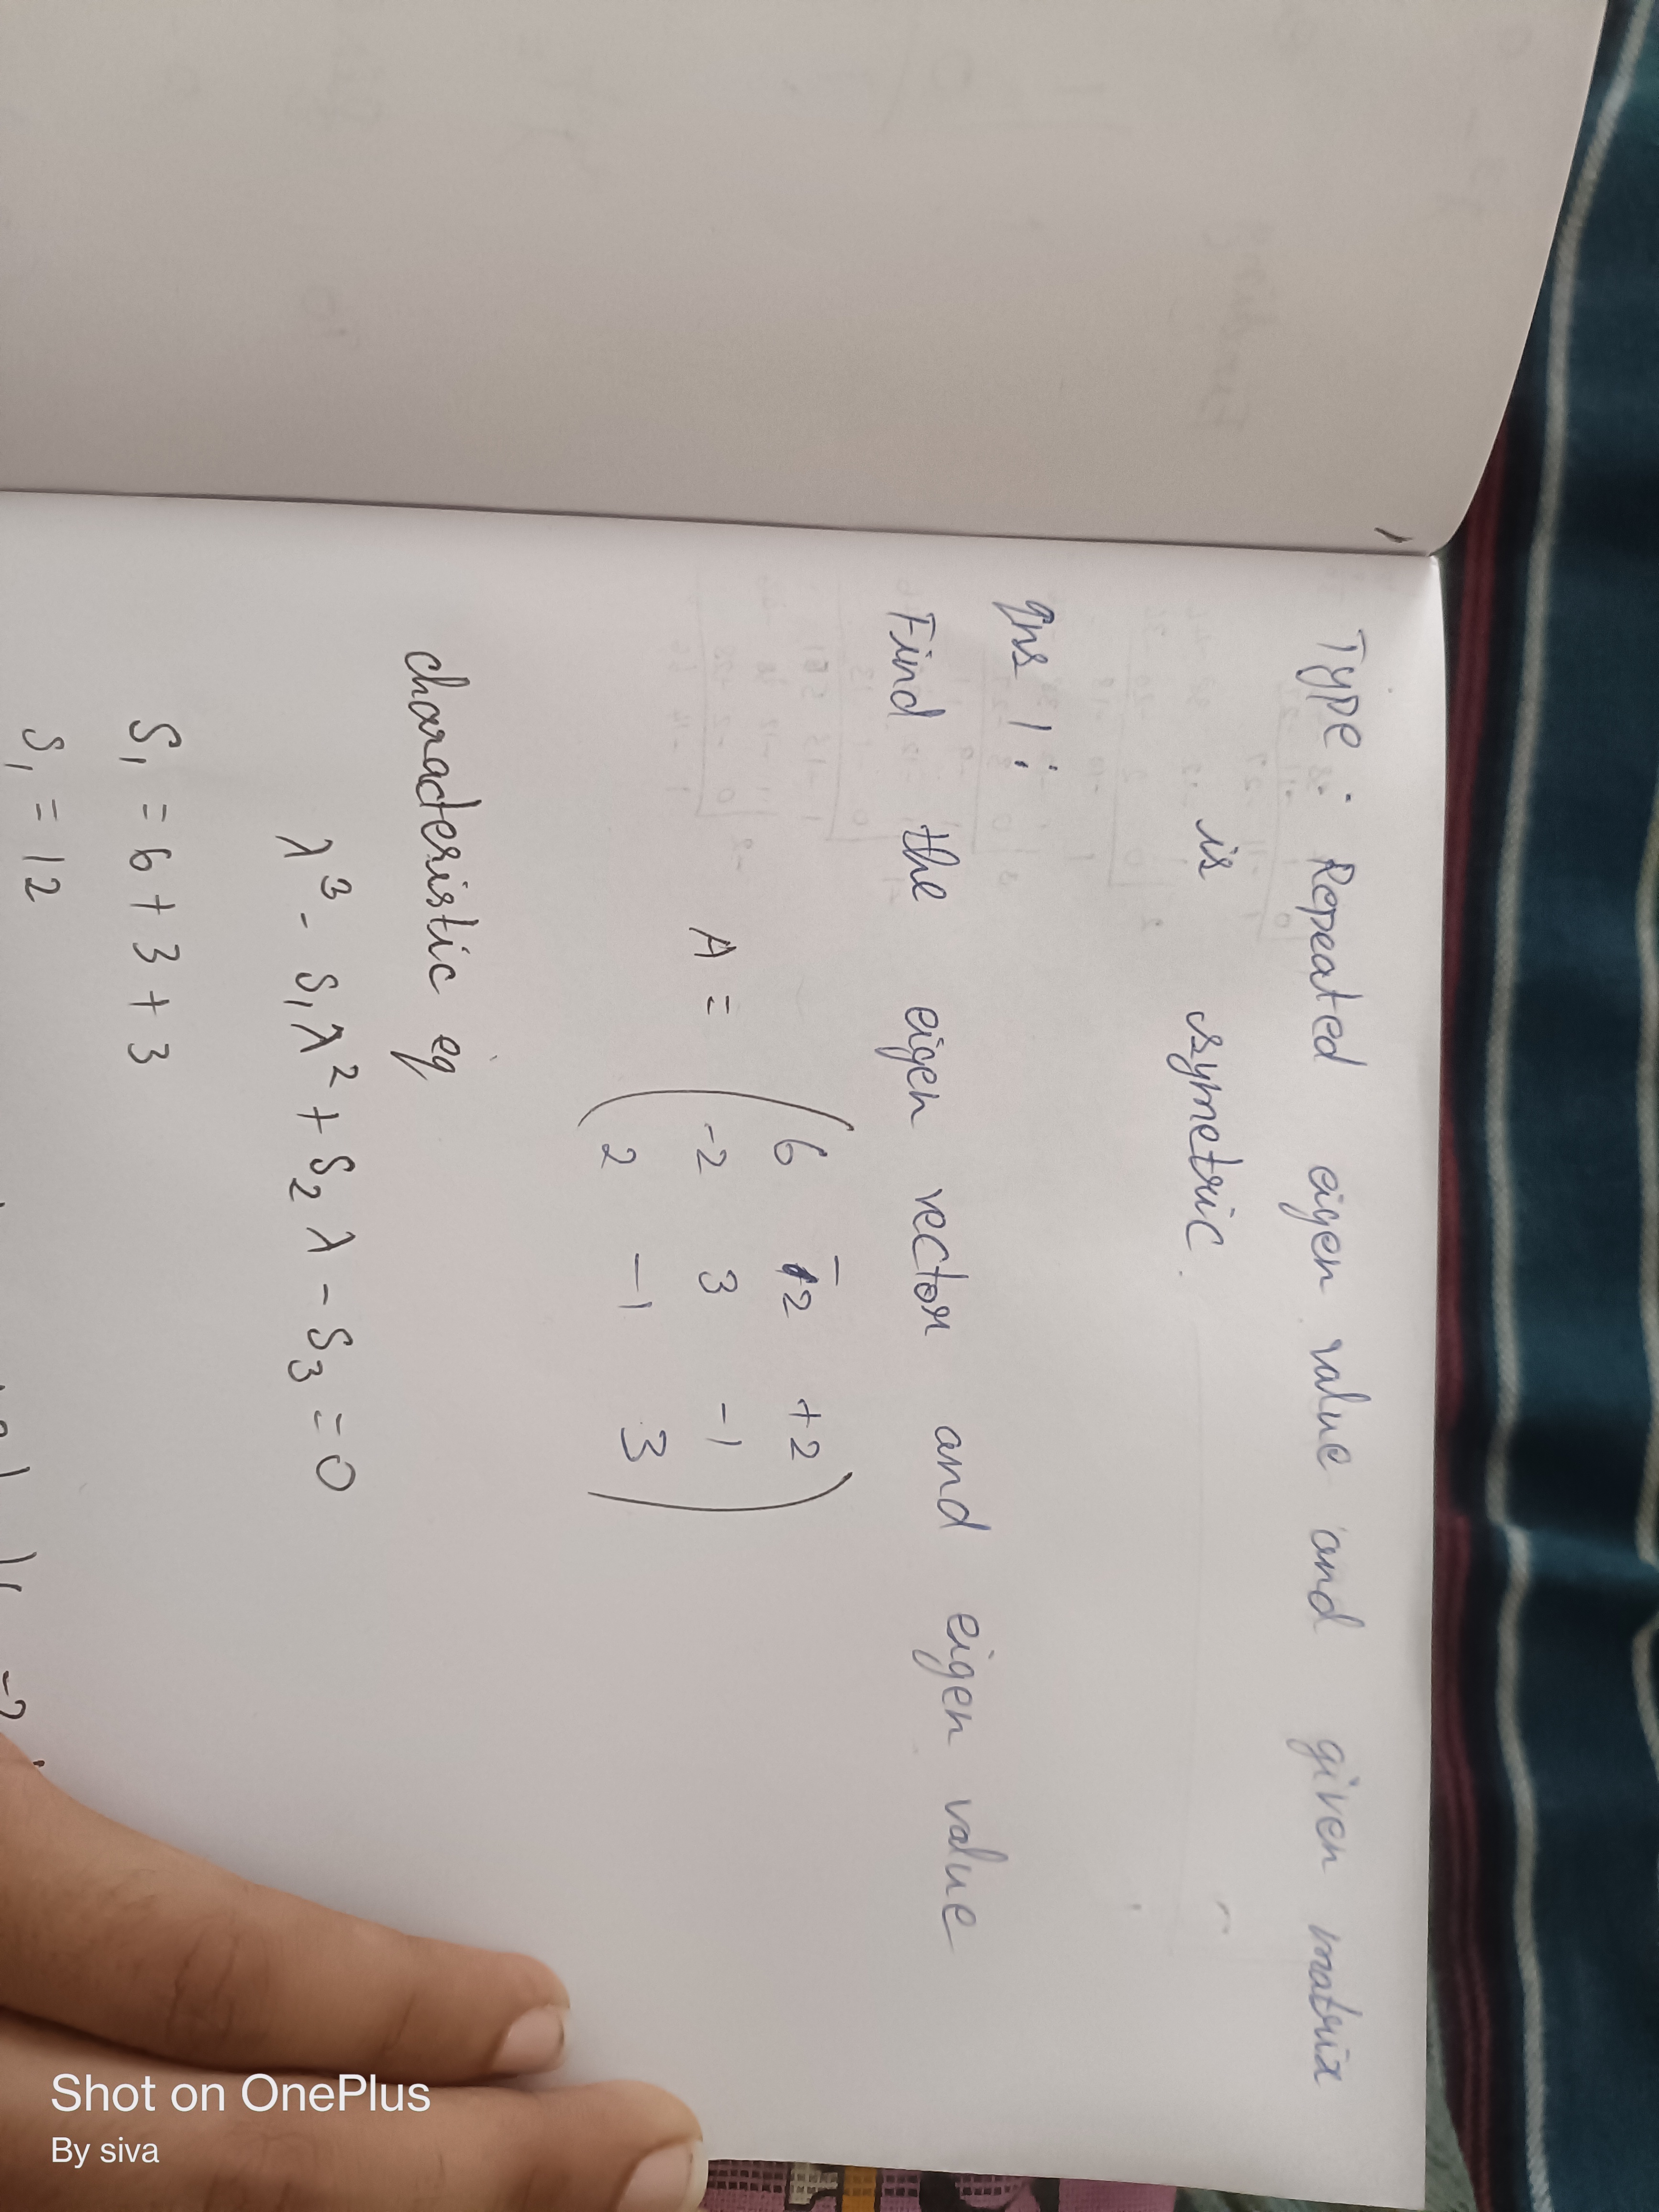 Type : Repeated eigen value and given matrix
is symetric.
qns 1 :
Find the eigen vector and eigen value
6 -2 +2
A = -2 3 -1
2 -1 3
characteristic eq
λ³ - S₁λ² + S₂λ - S₃ = 0
S₁ = 6 + 3 + 3
S₁ = 12
Shot on OnePlus
By siva